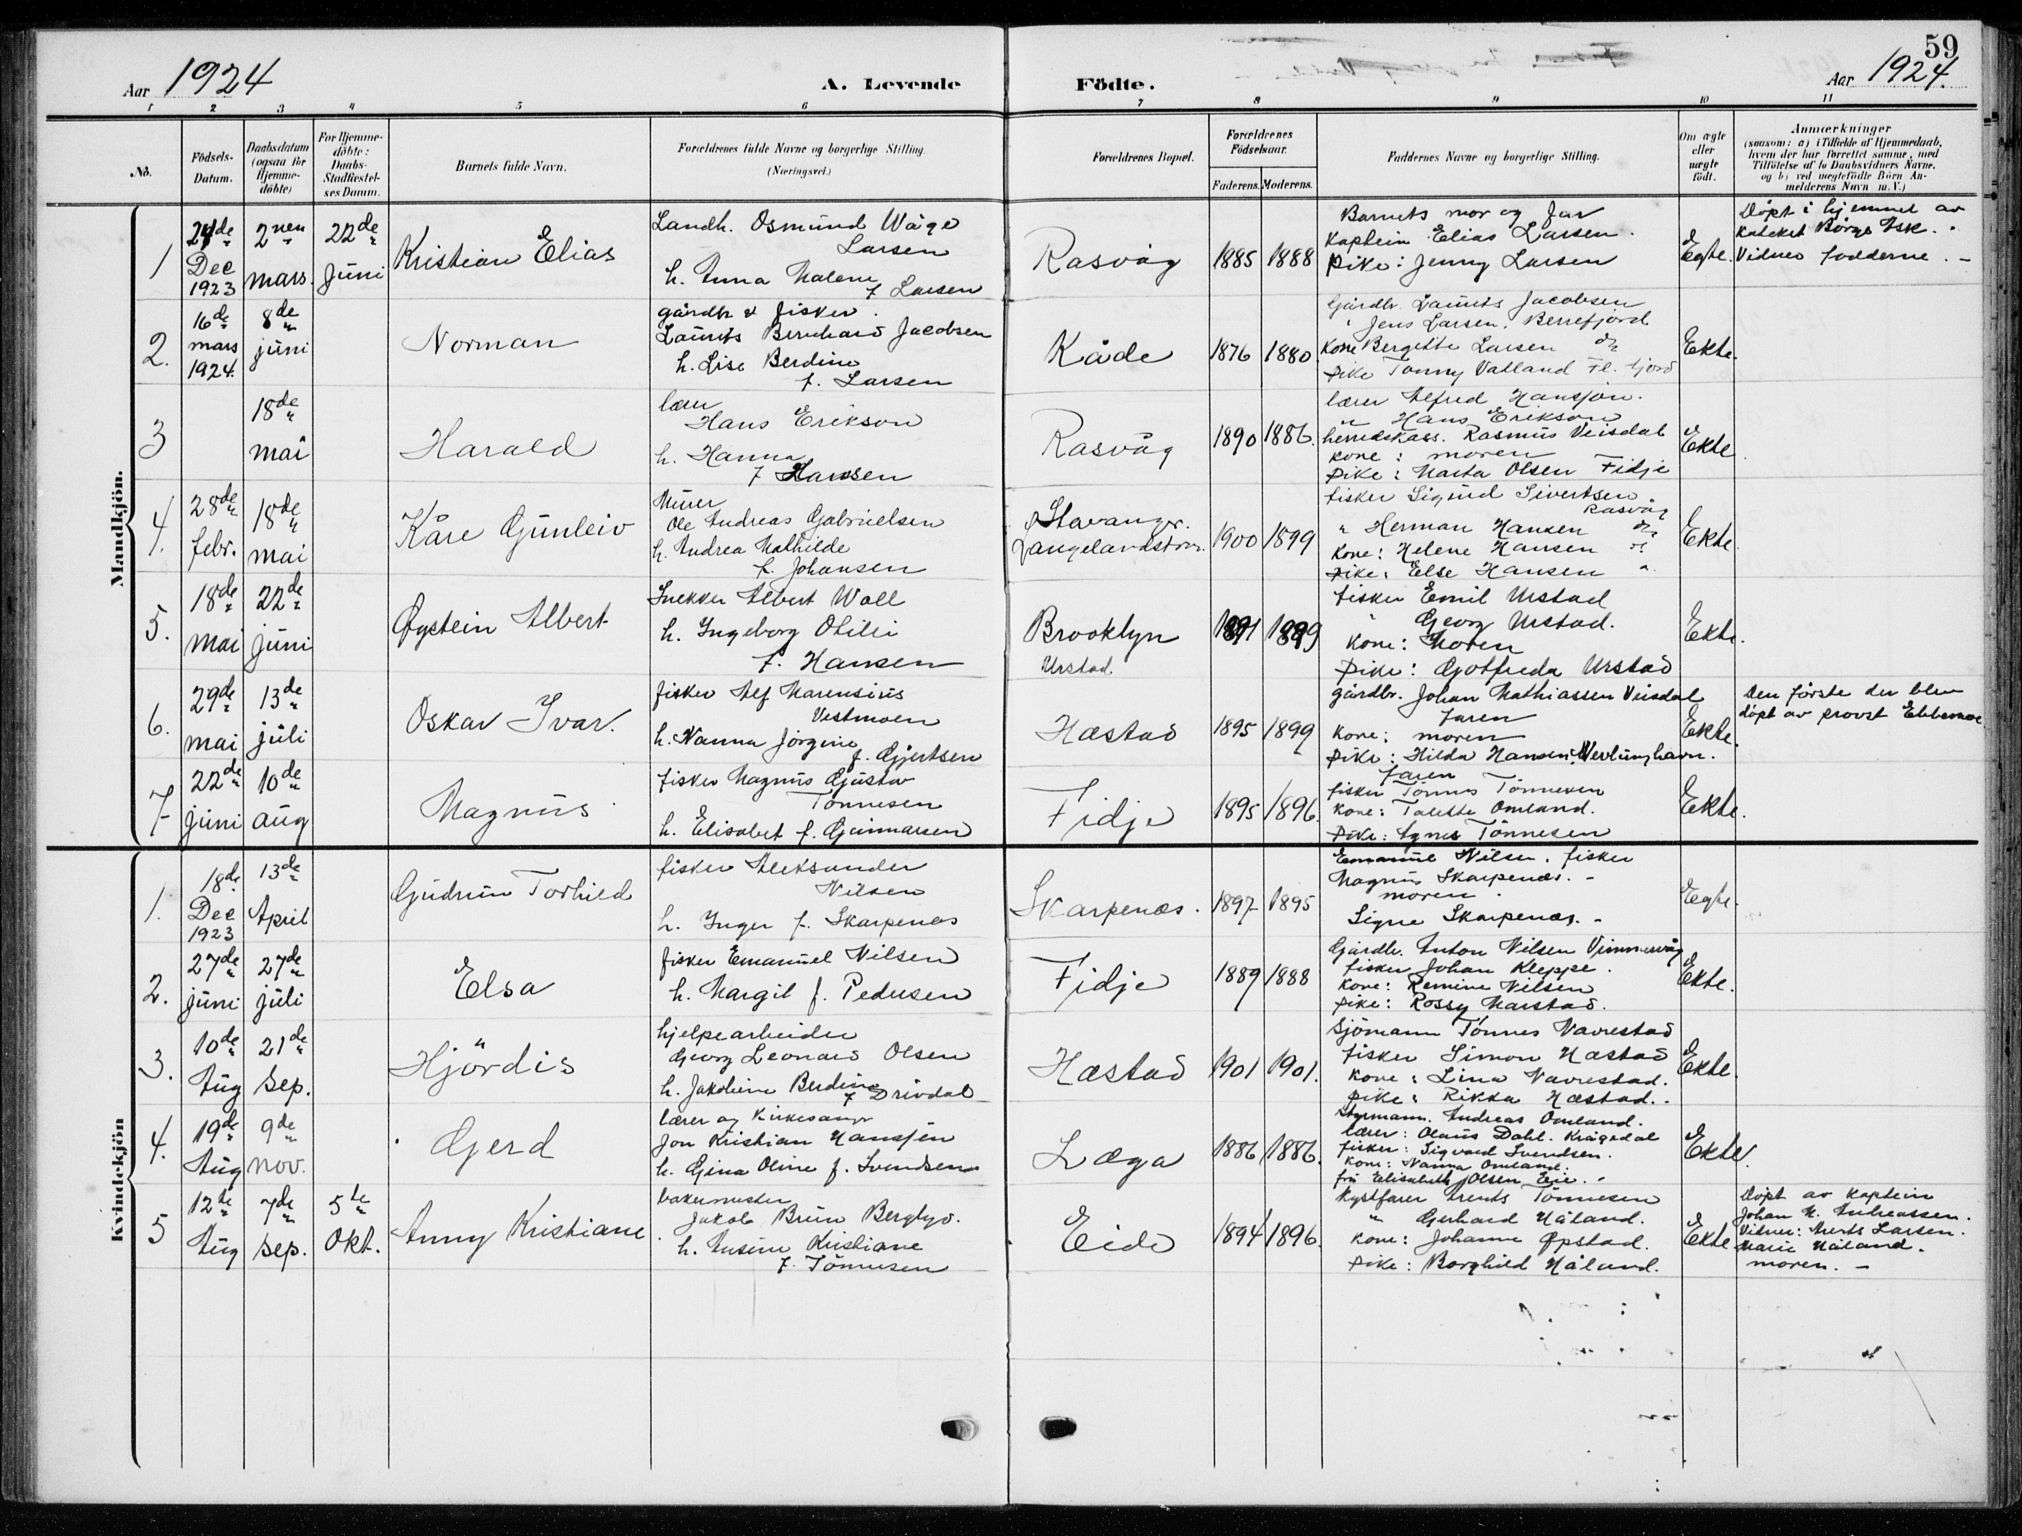 59
Aar 1924
A. Levende Födte.
Aar 1924.
1 2 3 4 5 6 7 8 9 10 11
No.
Födsels-
Datum.
Daabsdatum
(ogsaa för
Hjemme-
döbte)
For Hjemme-
döbte:
Daabs-
Stadfæstel-
ses Datum.
Barnets fulde Navn.
Forældrenes fulde Navne og borgerlige Stilling.
(Næringsvei.)
Forældrenes Bopæl.
Forældrenes
Födselsaar.
Faderens. Moderens.
Faddernes Navne og borgerlige Stilling.
Om ægte
eller
uægte
födt.
Anmærkninger
(saasom: a) i Tilfælde af Hjemmedaab,
hvem der har forrettet samme, med
Tilföielse af to Daabsvidners Navne,
og b) ved uægtefödte Börn An-
melderens Navn m. V.)
Mandkjön.
1
24de
Dec
1923
2nen
mars.
22de
Juni
Kristian Elias
Landh. Osmund Wåge
Larsen
h. Anna Malene
f. Larsen
Rasvåg
1885 1888
Barnets mor og far
Kaptein Elias Larsen.
Pike: Jenny Larsen
Egte.
Döpt i hjemmet av
kateket Börge Isk.
Vidner fadderne. -
2.
16de
mars
1924.
8de
juni
Norman
gårdbr & fisker.
Laurits Bernhard Jacobsen
h. Lise Berdine
f. Larsen
Kåde
1876 1880.
Gårdbr. Laurits Jacobsen
" Jens Larsen, Berrefjord
Kone Bergitte Larsen do
Pike Tonny Vatland Fl. fjord
Ekte.
3
18de
mai
Harald
lærer
Hans Erikson
h. Hanna
f Hansen
Rasvåg
1890 1886.
lærer Alfred Hansson.
" Hans Erikson
herredskass. Rasmus Veisdal
Kone: moren
Pike: Marta Olsen Fidje
Ekte.
4.
28de
febr.
18de
mai
Kåre Gunleiv
Murer
Ole Andreas Gabrielsen
h. Andrea Mathilde
f. Johansen
Stavanger.
Langelandstrø.
1900 1899
fisker Sigurd Sivertsen.
Rasvåg
" Herman Hansen do
Kone: Helene Hansen do
Pike: Else Hansen "
Ekte.
5.
18de
mai
22de
juni
Øystein Albert
Snekker Albert Wall
h. Ingeborg Otilie
f. Hansen
Brooklyn
Urstad.
1891 1899
fisker Emil Urstad
" Georg Urstad.
Kone: Moren
Pike: Gotfreda Urstad
Ekte.
6.
29de
mai
13de
juli
Oskar Ivar.
fisker Alf Marensius
Vestmoen
h. Nanna Jörgine
f. Gjertsen
Hæstad
1895 1899
gårdbr. Johan Mathiassen Veisdal
faren
Kone: moren
Pike: Hilda Hansen, Nevlunghavn.
Ekte.
Den förste der blev
döpt av provst Ebbesmoe
7
22de
juni
10de
aug
Magnus
fisker Magnus Gustav
Tönnesen
h. Elisabet f. Gunnarsen
Fidje
1895 1896.
faren
fisker Tönnes Tönnesen
Kone: Talette Omland.
Pike: Agnes Tönnesen
Ekte.
Kvindekjön
1.
18de
Dec
1923
13de
April
Gudrun Torhild
fisker Aleksander
Nilsen
h. Inger f. Skarpenæs
Skarpenæs.
1897 1895
Emanuel Nilsen. fisker
Magnus Skarpenæs. -
moren.
Signe Skarpenæs. -
Egte.
2.
27de
juni
27de
juli
Elsa
fisker Emanuel Nilsen
h. Margit f. Pedersen
Fidje
1889 1888
Gårdbr. Anton Nilsen Vinnesvåg
fisker Johan Kleppe.
Kone: Remine Nilsen
Pike: Rossy Marstad.
Ekte.
3.
10de
Aug
21de
Sep.
Hjördis
hjelpearbeider
Georg Leonard Olsen
h. Jakobine Berdine
f Drivdal
Hæstad
1901 1901.
Sjömann Tönnes Navrestad
fisker Simon Hæstad
Kone: Lina Navrestad.
Pike: Rikka Hæstad.
Ekte.
4.
19de
Aug
9de
nov.
Gjerd
lærer og Kirkesanger
Jon Kristian Hanssen
h. Gina Oline f. Svendsen
Læga
1886 1886.
Styrmann. Andreas Omland.
lærer: Olaus Dahl. Krågedal
fisker: Sigvard Svendsen.
Kone: Nanna Omland.
frö Elisabeth Olsen Eie.
Ekte.
5
12te
Aug
7de
Sep.
5te
Okt.
Anny Kristiane
bakermester
Jakob Brun Bergbyd.
h. Ansine Kristiane
f. Tönnesen
Eide
1894 1896.
Kystfarer Arents Tönnesen
" Gerhard Håland.
Kone: Johanne Opstad.
Pike: Borghild Håland.
Ekte
Döpt av Kaptein
Johan N. Andreassen.
Vidner: Arents Larsen.
Marie Håland.
moren. -